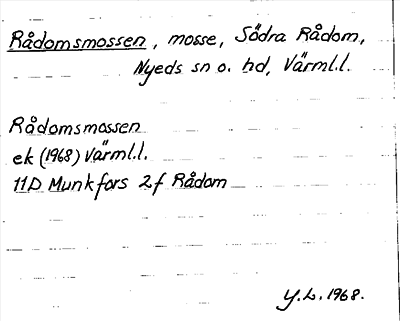 Rådomsmossen, mosse, Södra Rådom,
Nyeds sn o. hd, Värml.l.
Rådomsmossen
ek (1968) Värml.l.
11D Munkfors 2f Rådom
Y.L. 1968.